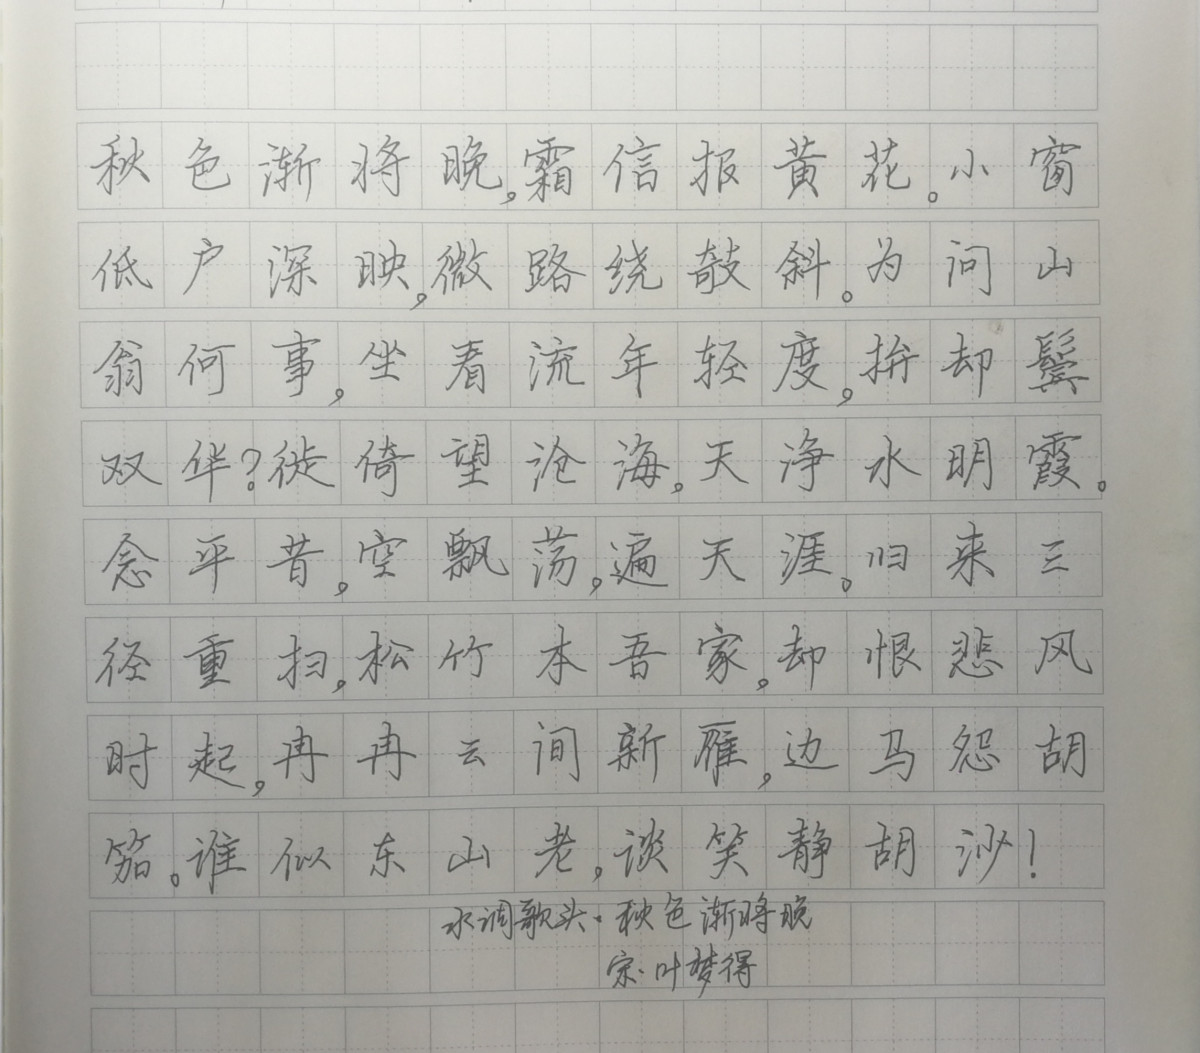 秋色渐将晚,霜信报黄花。小窗
低户深映,微路绕敧斜。为问山
翁何事,坐看流年轻度,拚却鬓
双华?徙倚望沧海,天净水明霞。
念平昔,空飘荡,遍天涯。归来三
径重扫,松竹本吾家,却恨悲风
时起,冉冉云间新雁,边马怨胡
笳。谁似东山老,谈笑静胡沙!
水调歌头·秋色渐将晚
宋·叶梦得